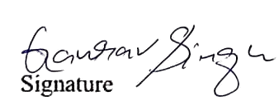 Gaurav Singh
Signature